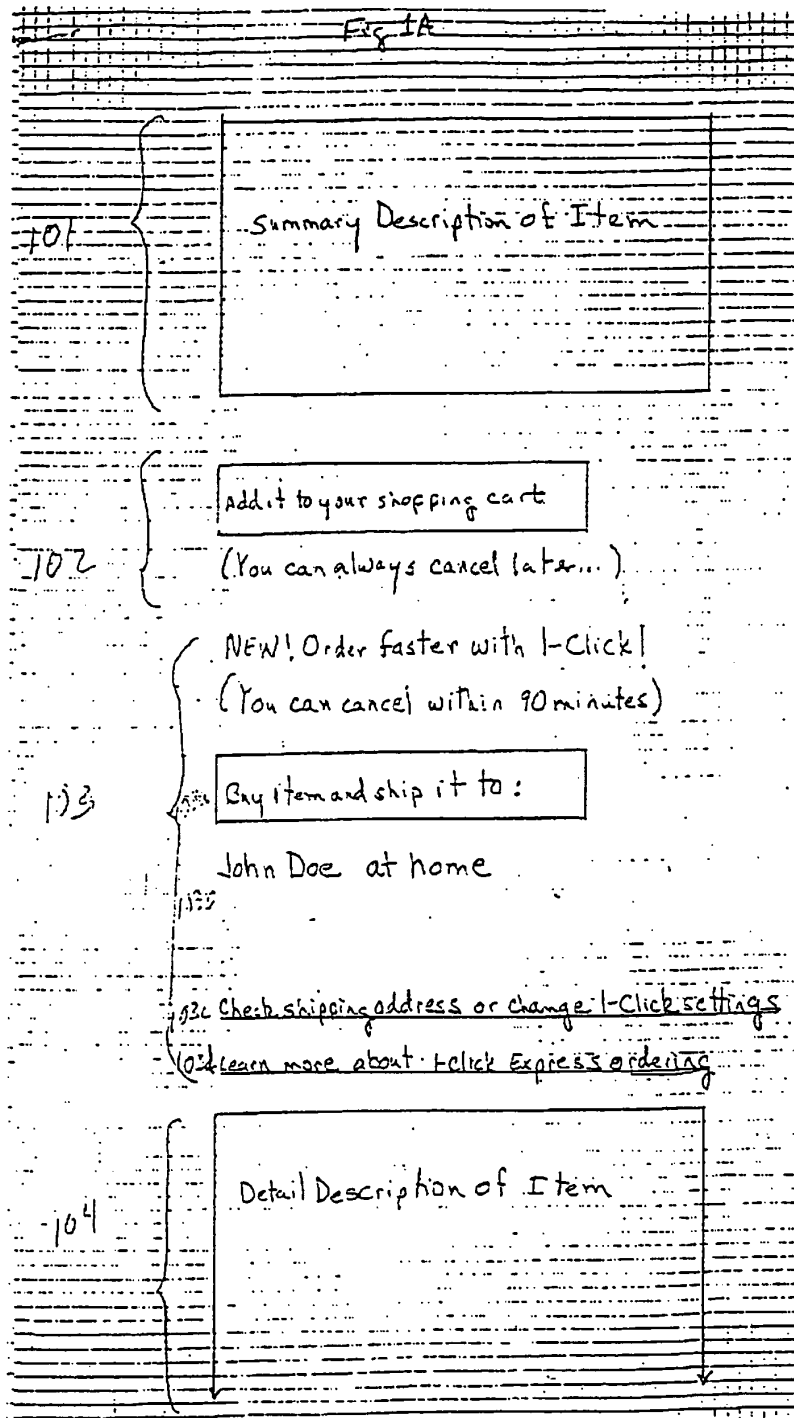 Fig 1A
Summary Description of Item
101
Add it to your shopping cart
102
(You can always cancel later...)
NEW! Order faster with 1-Click!
(You can cancel within 90 minutes)
103
Buy item and ship it to:
John Doe at home
103c Check shipping address or change 1-Click settings
103d Learn more about 1-Click Express ordering
Detail Description of Item
104